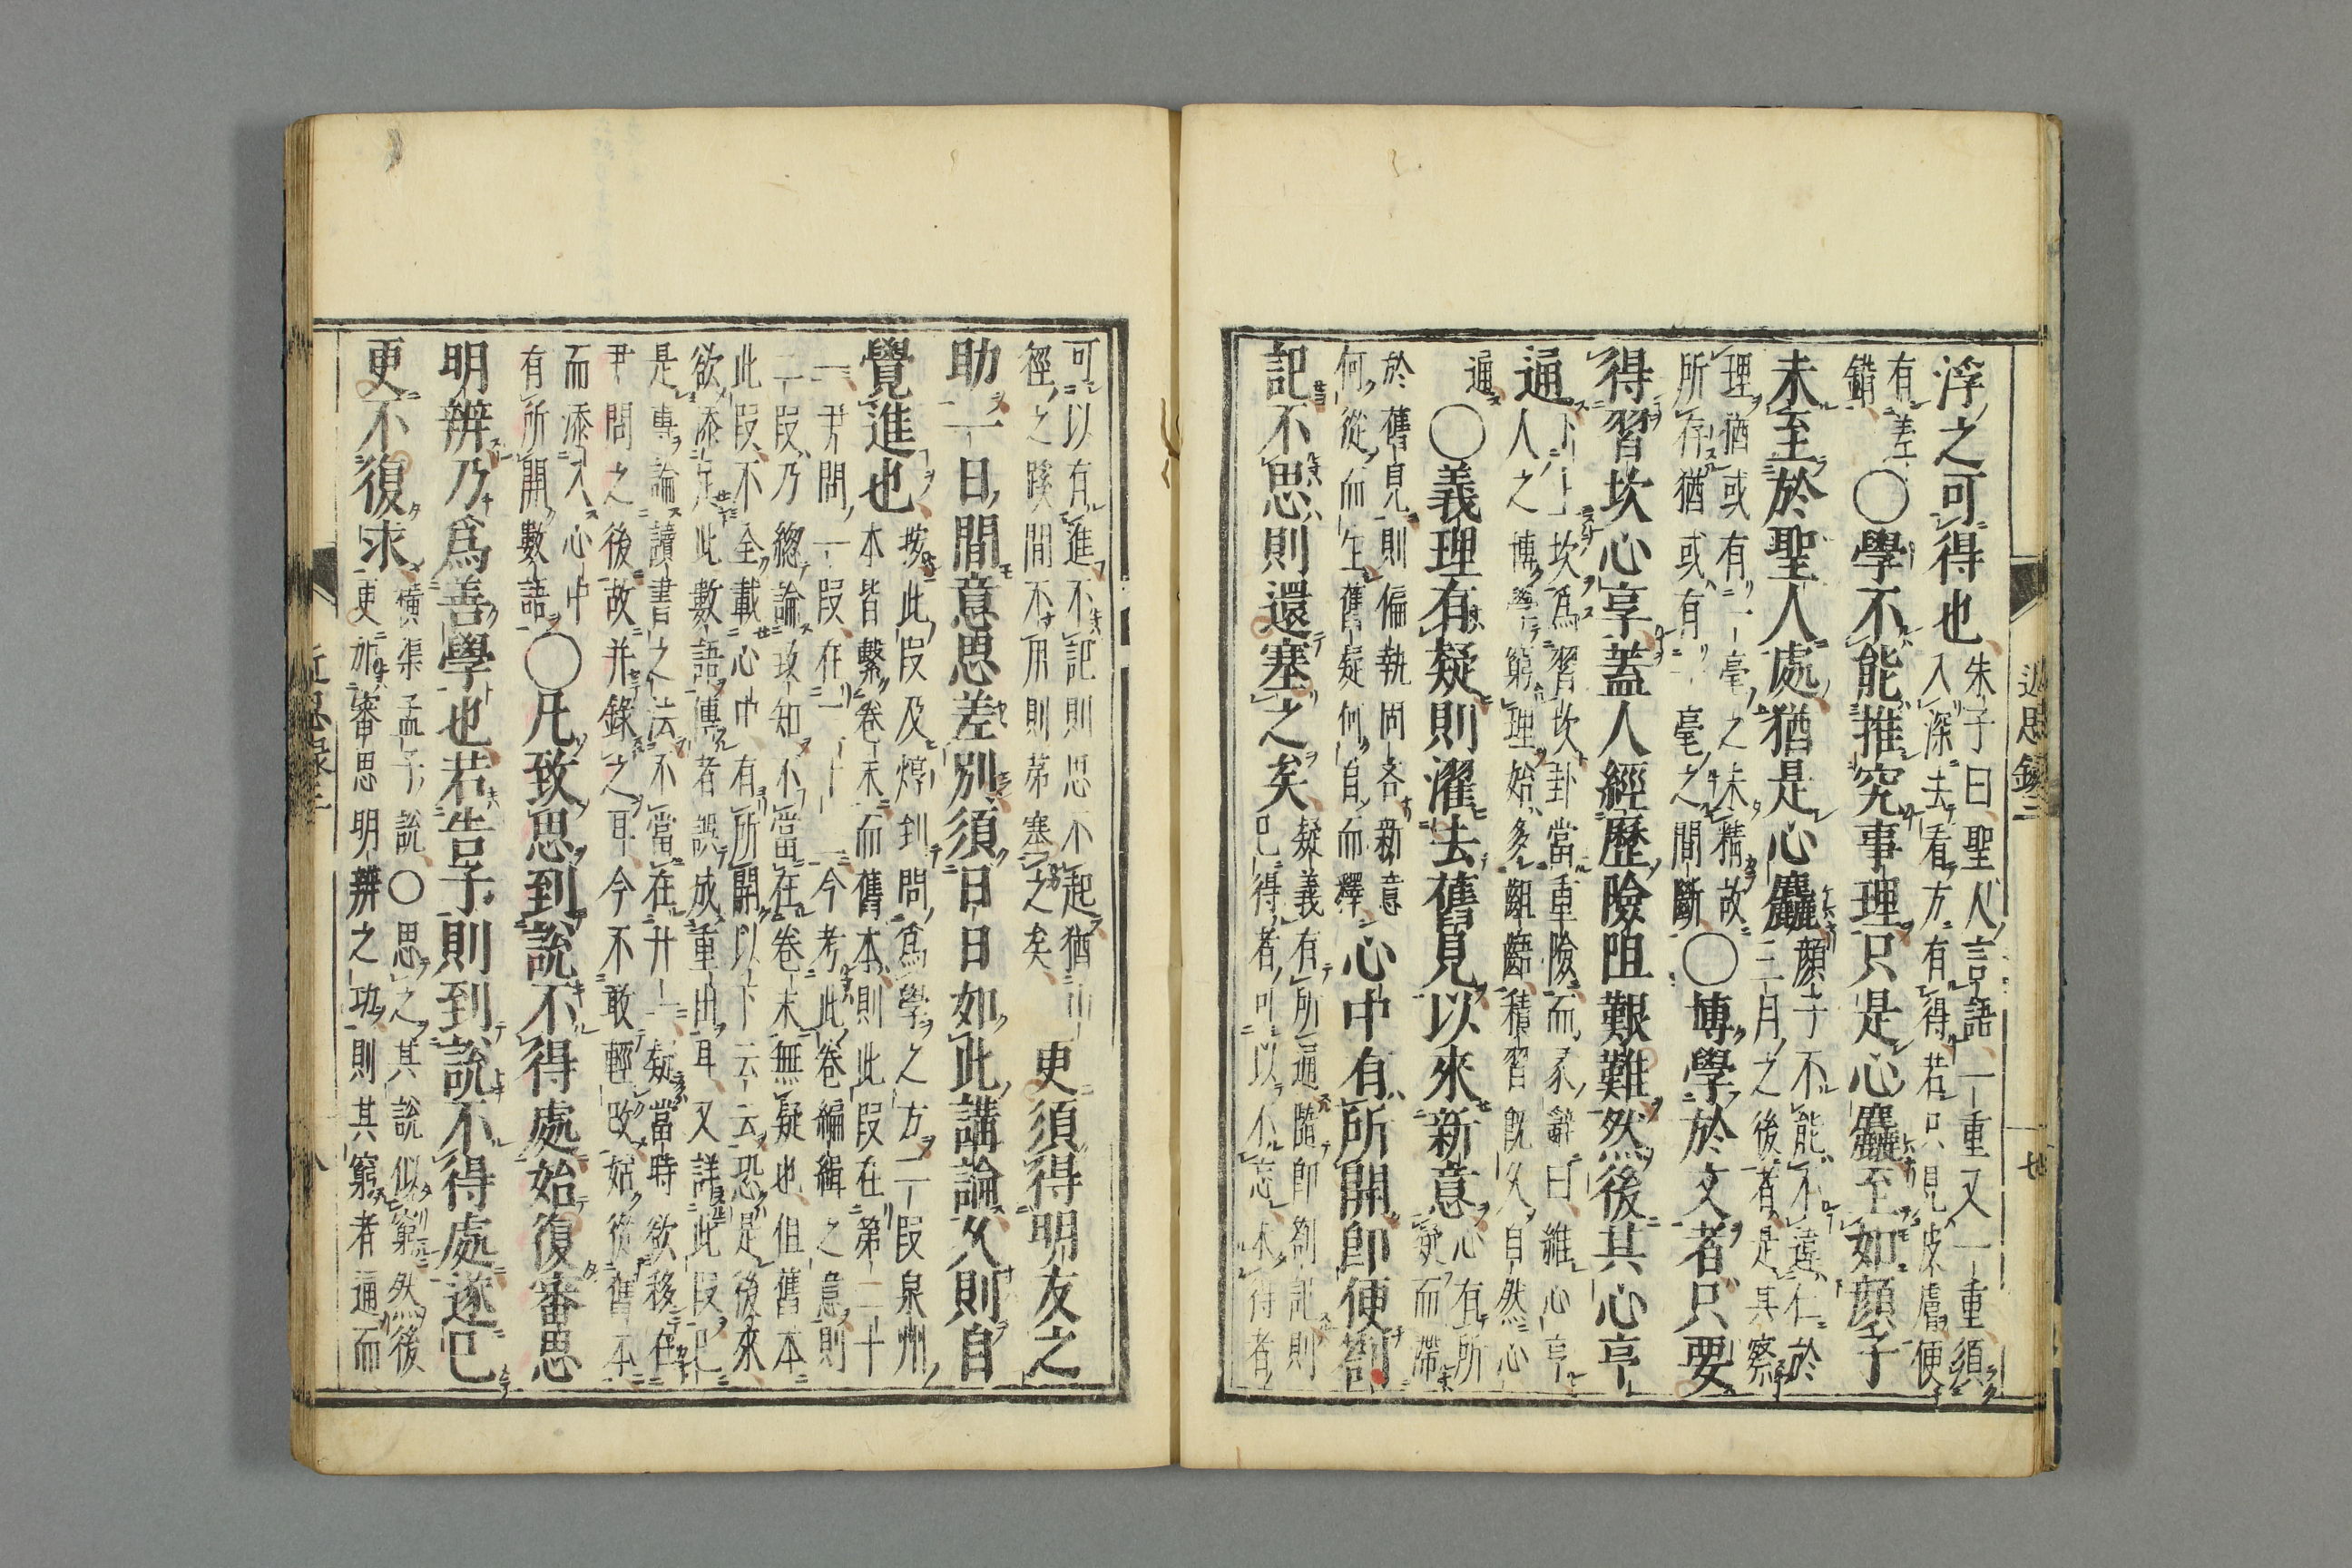 近思錄三
七
浮之可得也
朱子曰聖人言語一重又一重須
入深去看方有得若只見皮膚便
有差
錯
○學不能推究事理只是心麤至如顏子
未至於聖人處猶是心麤
顏子不能不違仁於
三月之後者是其察
理猶或有一毫之未精故
所存猶或有一毫之間斷
○博學於文者只要
得習坎心亨蓋人經歷險阻艱難然後其心亨
通
下上坎爲習坎卦當重險而彖辭曰維心亨
人之博學窮理始多齟齬積習既久自然心
通
○義理有疑則濯去舊見以來新意
心有所
疑而滯
於舊見則偏執固吝新意
何從而生舊疑何自而釋
心中有所開即便劄
記不思則還塞之矣
疑義有所通隨即劄記則
已得者可以不忘未得者
可以有進不記則思不起猶山
徑之蹊間不用則茅塞之矣
更須得明友之
助一日間意思差別須日日如此講論久則自
覺進也
按此段及焞到問爲學之方一段泉州
本皆繫卷末而舊本則此段在第二十
一尹問一段在二十一今考此卷編緝之意則
二段乃總論致知不當在卷末無疑也但舊本
此段不全載心中有所開以下云云恐是後來
欲添足此數語傳者誤成重出耳又詳此段已
是專論讀書之法不當在廿一疑當時欲移在
尹問之後故并錄之耳今不敢輕改姑從舊本
而添入心中
有所開數語
○凡致思到說不得處始復審思
明辨乃爲善學也若告子則到說不得處遂已
更不復求
橫渠孟子說○思之其說似窮然後
更加審思明辨之功則其窮者通而
近思錄三
八